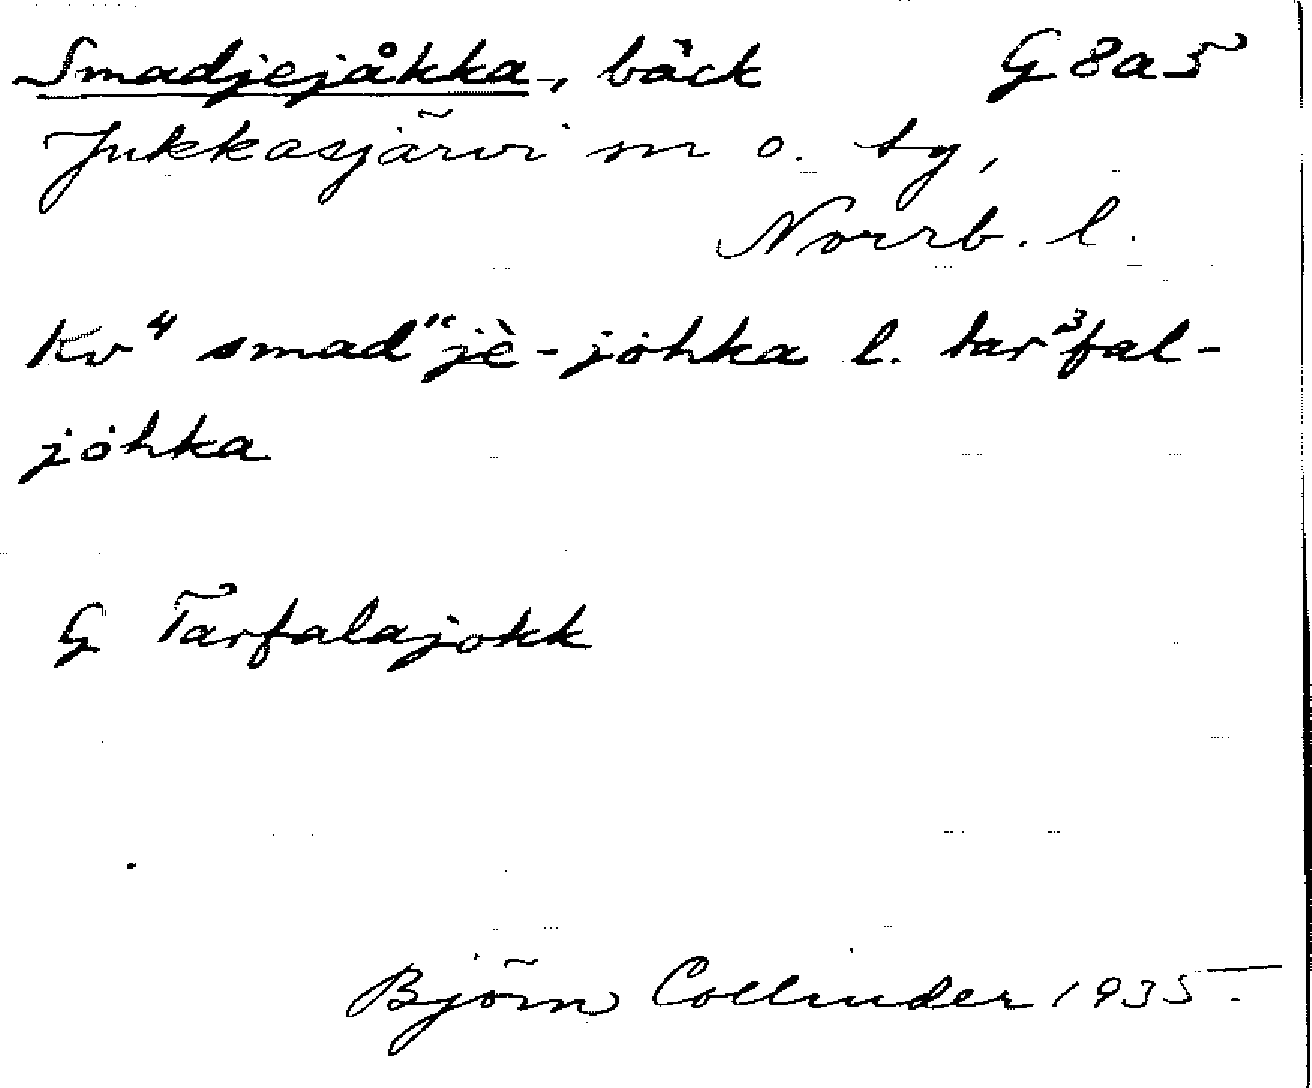 Smadjejåkka, bäck G 8a5
Jukkasjärvi sn o. tg,
Norrb. l.
Kv⁴ smad"jè-jòhka l. tar³fal-
jòhka
G Tarfalajokk
Björn Collinder 1935.